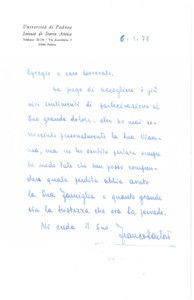 Università di Padova
Istituto di Storia Antica
6.1.78
Egregio e caro Avvocato,
La prego di accogliere i più
vivi sentimenti di partecipazione al
Suo grande dolore. Non ho mai
conosciuto personalmente la Sua Mamma,
ma ne ho sentito parlare sempre
in modo tale che ben posso comprendere
quale perdita abbia avuto
la Sua famiglia e quanto grande
sia la tristezza che ora La pervade.
Mi creda il Suo Franco Sartori